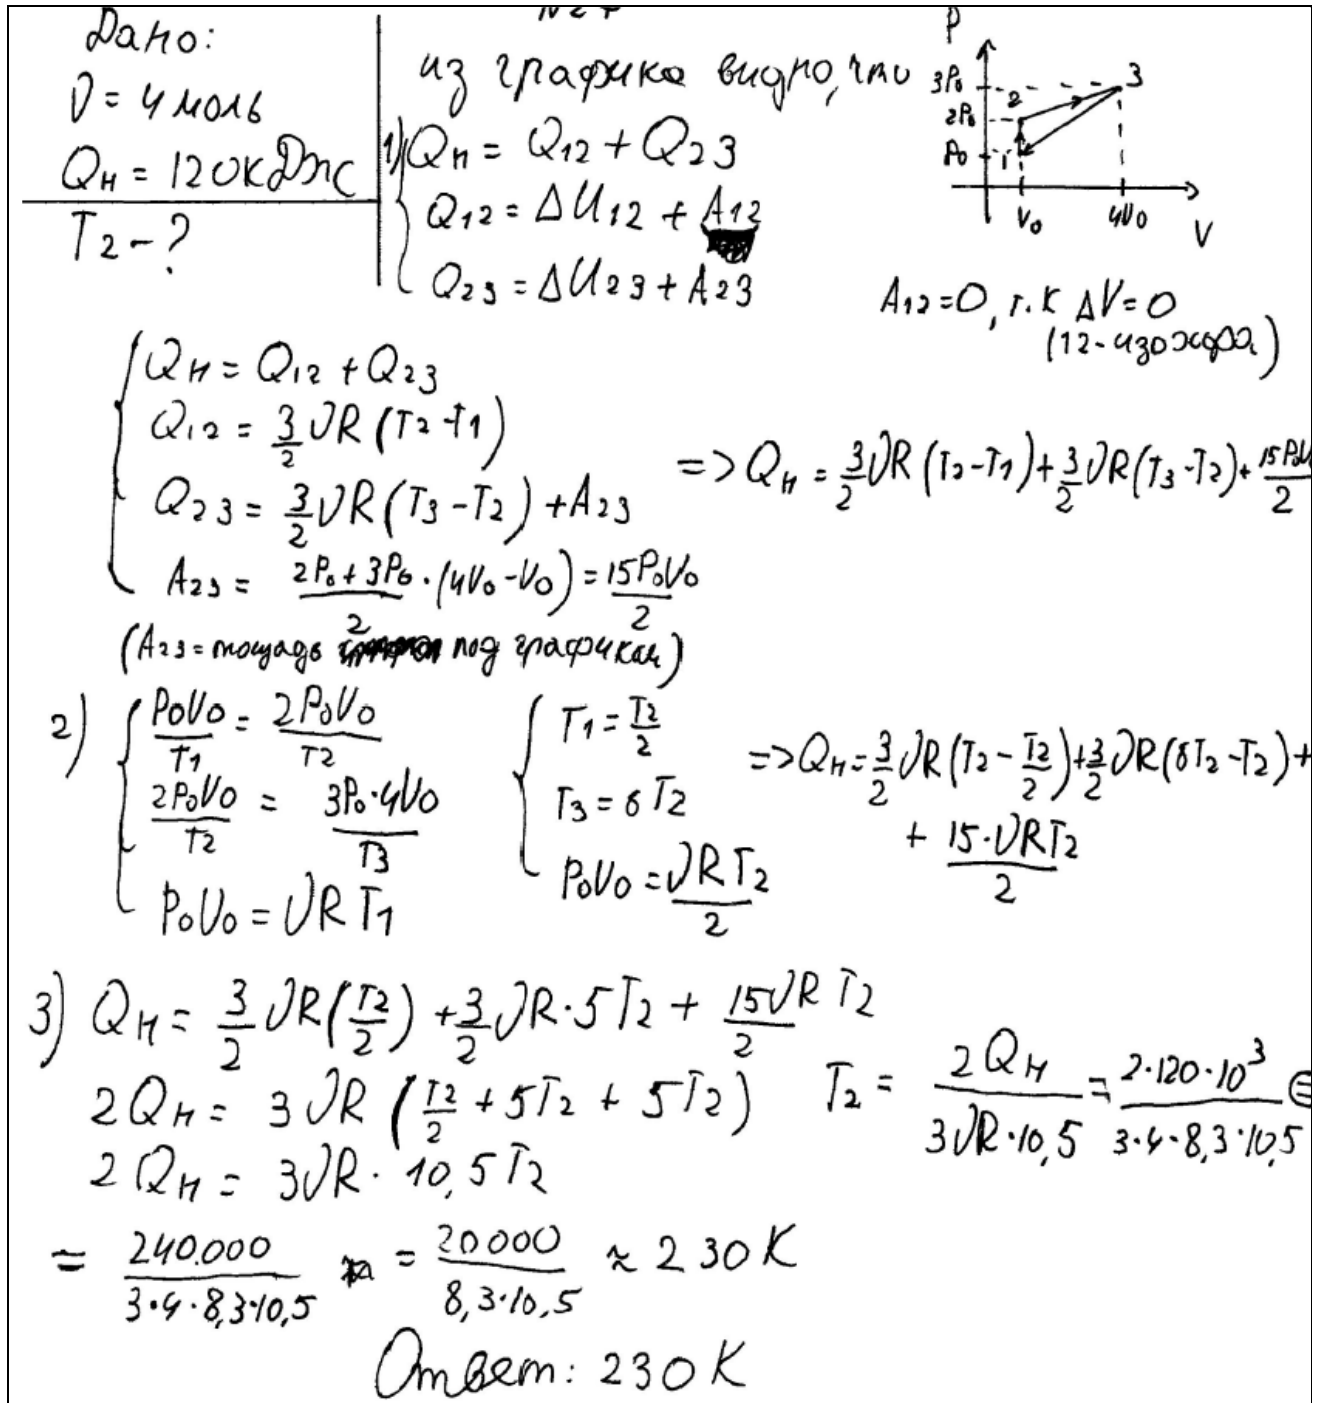 Дано:
ν = 4 моль
Qн = 120 кДж
T2 - ?
из графика видно, что
1) Qн = Q12 + Q23
Q12 = ΔU12 + A12
Q23 = ΔU23 + A23
P
3P0
2P0
P0
1
2
3
V0
4V0
V
A12 = 0, т.к ΔV = 0
(12 - изохора)
Qн = Q12 + Q23
Q12 = 3/2 νR (T2 - T1)
Q23 = 3/2 νR (T3 - T2) + A23
A23 = (2P0 + 3P0)/2 · (4V0 - V0) = 15P0V0/2
=> Qн = 3/2 νR (T2 - T1) + 3/2 νR (T3 - T2) + 15P0V/2
(A23 = площадь под графиком)
2) P0V0/T1 = 2P0V0/T2
2P0V0/T2 = 3P0·4V0/T3
P0V0 = νRT1
T1 = T2/2
T3 = 6T2
P0V0 = νRT2/2
=> Qн = 3/2 νR (T2 - T2/2) + 3/2 νR (6T2 - T2) +
+ 15·νRT2/2
3) Qн = 3/2 νR (T2/2) + 3/2 νR·5T2 + 15νR/2 T2
2Qн = 3νR (T2/2 + 5T2 + 5T2)
2Qн = 3νR · 10,5T2
T2 = 2Qн/(3νR·10,5) = 2·120·10³/(3·4·8,3·10,5) =
= 240.000/(3·4·8,3·10,5) = 20000/(8,3·10,5) ≈ 230 К
Ответ: 230 К